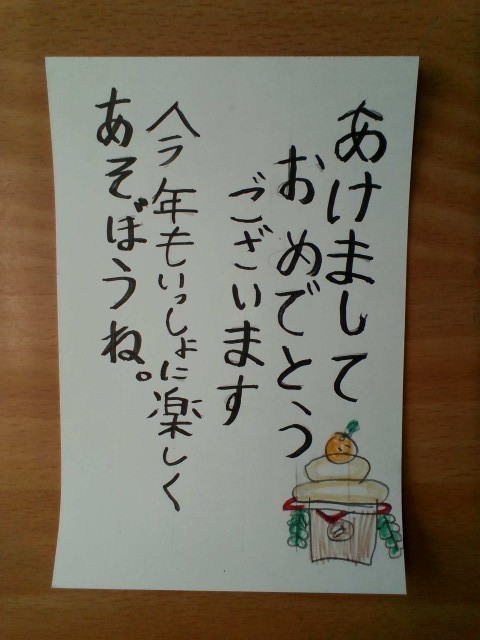 あけまして
おめでとう
ございます
今年もいっしょに楽しく
あそぼうね。